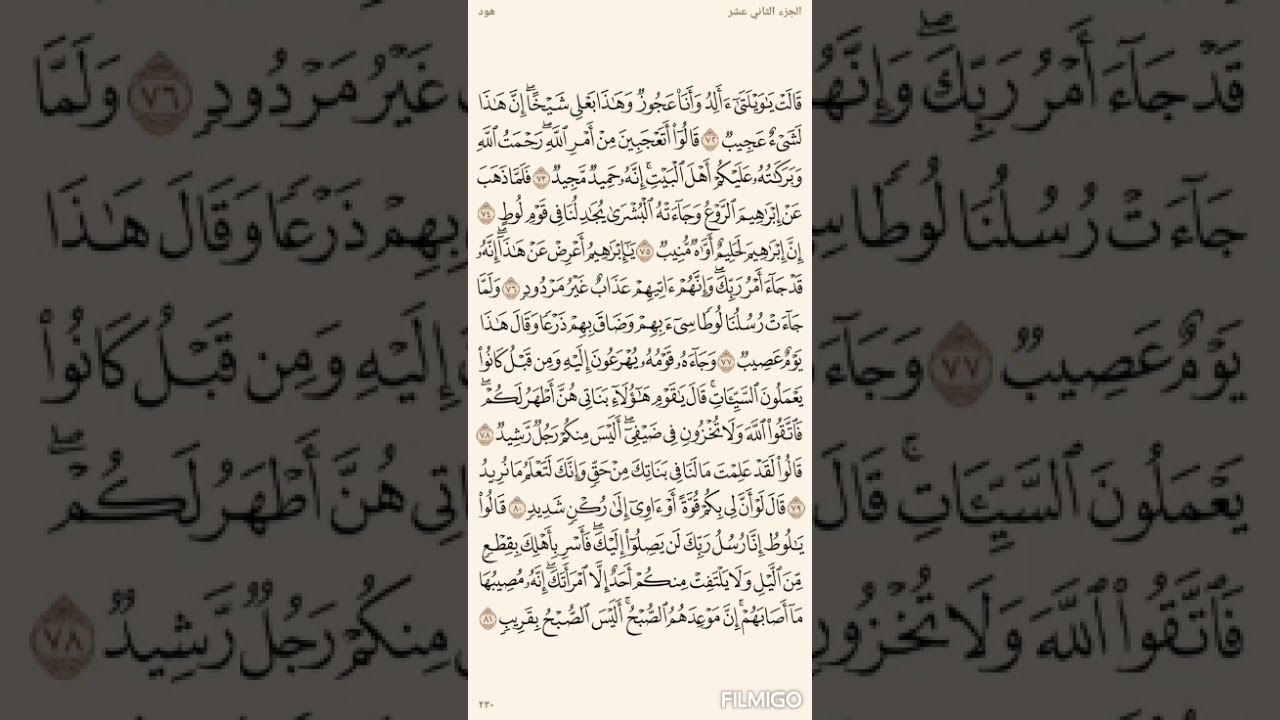 الجزء الثاني عشر
هود
قَالَتْ يَٰوَيْلَتَىٰٓ ءَأَلِدُ وَأَنَا۠ عَجُوزٌ وَهَٰذَا بَعْلِى شَيْخًا ۖ إِنَّ هَٰذَا
لَشَىْءٌ عَجِيبٌ ٧٢ قَالُوٓا۟ أَتَعْجَبِينَ مِنْ أَمْرِ ٱللَّهِ ۖ رَحْمَتُ ٱللَّهِ
وَبَرَكَٰتُهُۥ عَلَيْكُمْ أَهْلَ ٱلْبَيْتِ ۚ إِنَّهُۥ حَمِيدٌ مَّجِيدٌ ٧٣ فَلَمَّا ذَهَبَ
عَنْ إِبْرَٰهِيمَ ٱلرَّوْعُ وَجَآءَتْهُ ٱلْبُشْرَىٰ يُجَٰدِلُنَا فِى قَوْمِ لُوطٍ ٧٤
إِنَّ إِبْرَٰهِيمَ لَحَلِيمٌ أَوَّٰهٌ مُّنِيبٌ ٧٥ يَٰٓإِبْرَٰهِيمُ أَعْرِضْ عَنْ هَٰذَآ ۖ إِنَّهُۥ
قَدْ جَآءَ أَمْرُ رَبِّكَ ۖ وَإِنَّهُمْ ءَاتِيهِمْ عَذَابٌ غَيْرُ مَرْدُودٍ ٧٦ وَلَمَّا
جَآءَتْ رُسُلُنَا لُوطًا سِىٓءَ بِهِمْ وَضَاقَ بِهِمْ ذَرْعًا وَقَالَ هَٰذَا
يَوْمٌ عَصِيبٌ ٧٧ وَجَآءَهُۥ قَوْمُهُۥ يُهْرَعُونَ إِلَيْهِ وَمِن قَبْلُ كَانُوا۟
يَعْمَلُونَ ٱلسَّيِّـَٔاتِ ۚ قَالَ يَٰقَوْمِ هَٰٓؤُلَآءِ بَنَاتِى هُنَّ أَطْهَرُ لَكُمْ ۖ
فَٱتَّقُوا۟ ٱللَّهَ وَلَا تُخْزُونِ فِى ضَيْفِىٓ ۖ أَلَيْسَ مِنكُمْ رَجُلٌ رَّشِيدٌ ٧٨
قَالُوا۟ لَقَدْ عَلِمْتَ مَا لَنَا فِى بَنَاتِكَ مِنْ حَقٍّ وَإِنَّكَ لَتَعْلَمُ مَا نُرِيدُ
٧٩ قَالَ لَوْ أَنَّ لِى بِكُمْ قُوَّةً أَوْ ءَاوِىٓ إِلَىٰ رُكْنٍ شَدِيدٍ ٨٠ قَالُوا۟
يَٰلُوطُ إِنَّا رُسُلُ رَبِّكَ لَن يَصِلُوٓا۟ إِلَيْكَ ۖ فَأَسْرِ بِأَهْلِكَ بِقِطْعٍ
مِّنَ ٱلَّيْلِ وَلَا يَلْتَفِتْ مِنكُمْ أَحَدٌ إِلَّا ٱمْرَأَتَكَ ۖ إِنَّهُۥ مُصِيبُهَا
مَآ أَصَابَهُمْ ۚ إِنَّ مَوْعِدَهُمُ ٱلصُّبْحُ ۚ أَلَيْسَ ٱلصُّبْحُ بِقَرِيبٍ ٨١
٢٣٠
FILMIGO